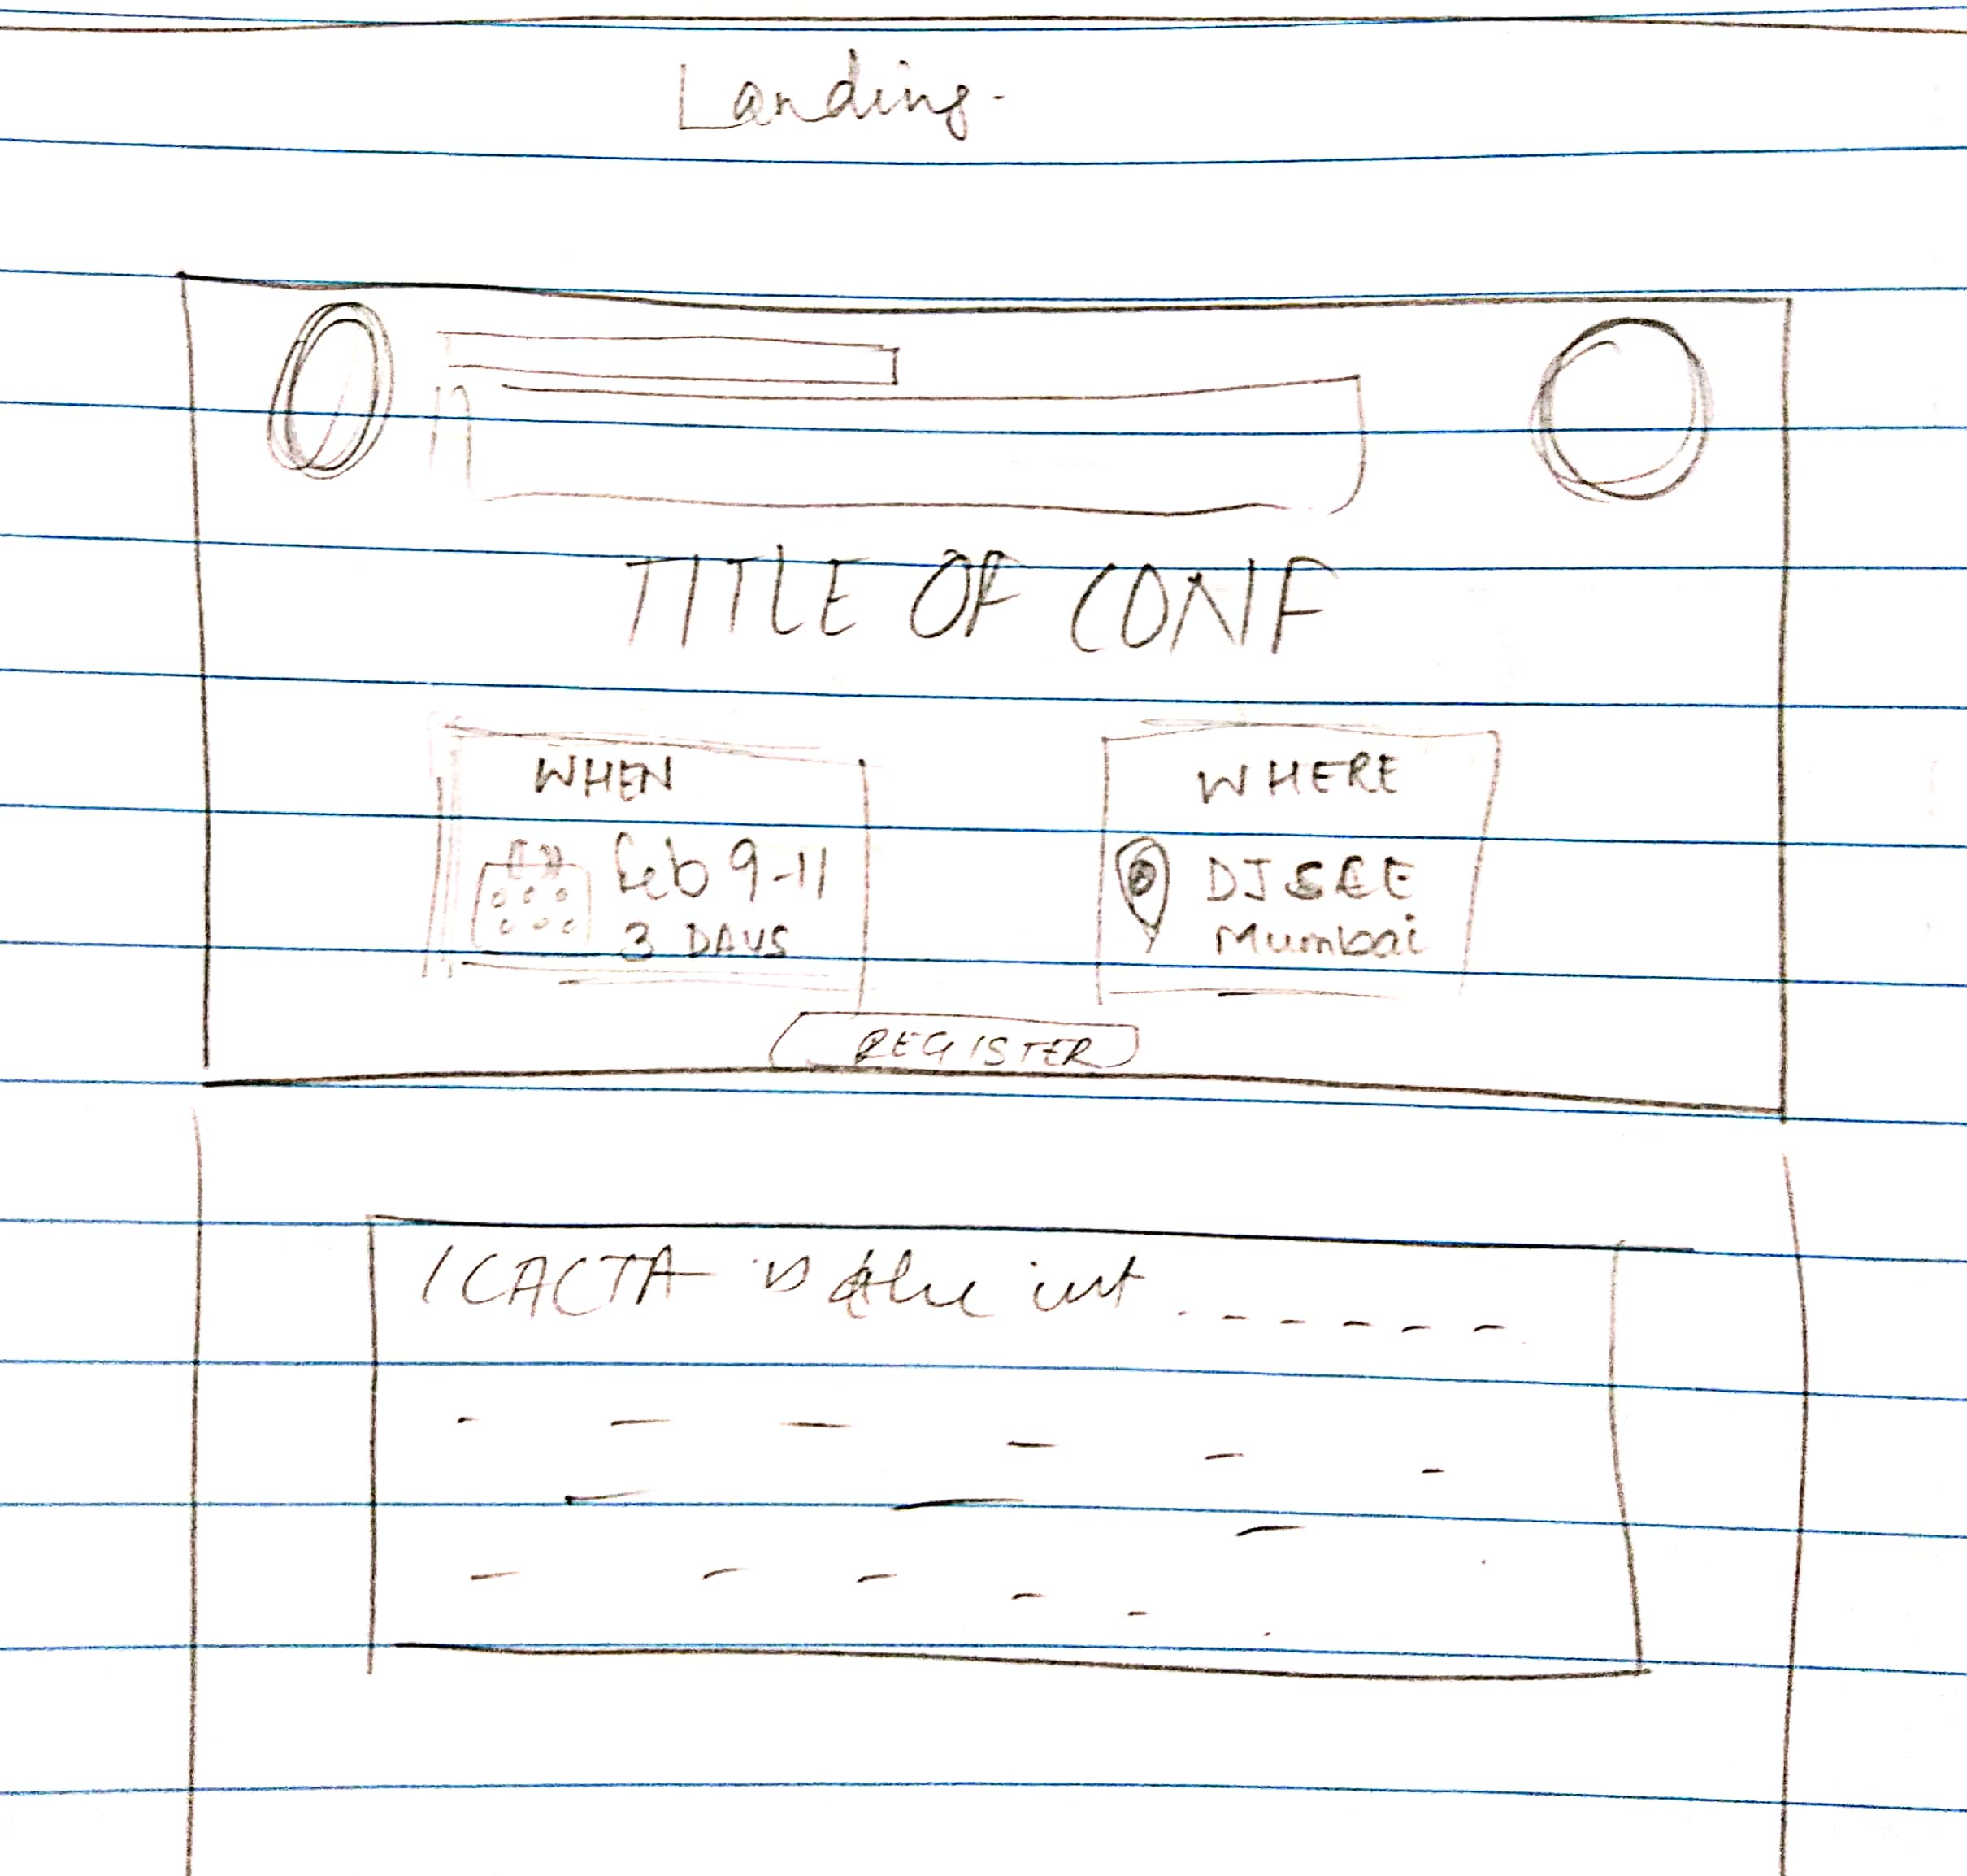 Landing.
TITLE OF CONF
WHEN
Feb 9-11
3 DAYS
WHERE
DJSCE
Mumbai
REGISTER
ICACTA is the int.